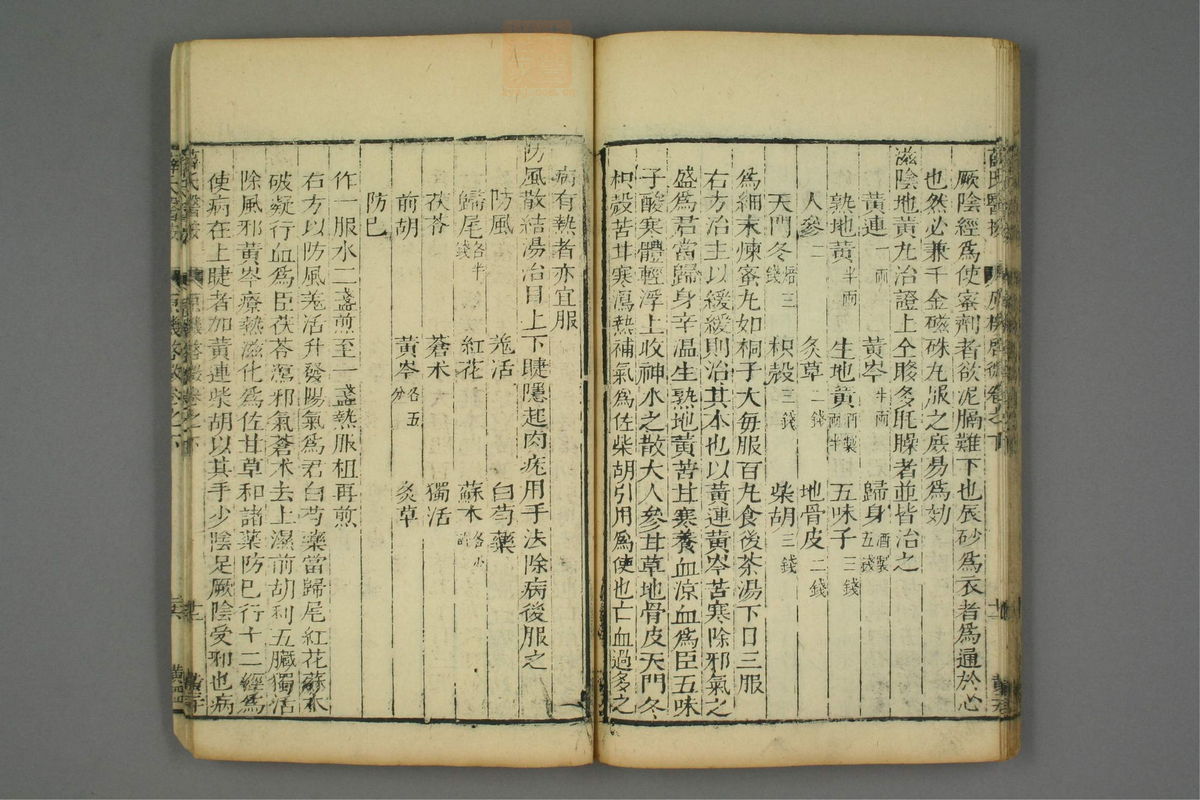 厥陰經爲使蜜劑者欲泥膈難下也辰砂爲衣者爲通於心
也然必兼千金磁硃丸服之庶易爲効
滋陰地黃丸治證上仝眵多眊矂者並皆治之
黃連一兩 黃芩半兩 歸身酒製五錢
熟地黃半兩 生地黃酒製兩半 五味子三錢
人參二 炙草二錢 地骨皮二錢
天門冬焙三錢 枳殼三錢 柴胡三錢
爲細末煉蜜丸如桐子大每服百丸食後茶湯下日三服
右方治主以緩緩則治其本也以黃連黃芩苦寒除邪氣之
盛爲君當歸身辛温生熟地黃苦甘寒養血凉血爲臣五味
子酸寒體輕浮上收神水之散大人參甘草地骨皮天門冬
枳殼苦甘寒瀉熱補氣爲佐柴胡引用爲使也亡血過多之
病有熱者亦宜服
防風散結湯治目上下睫隱起肉疣用手法除病後服之
防風 羗活 白芍藥
歸尾各半錢 紅花 蘇木各少許
茯苓 蒼朮 獨活
前胡 黃芩各五分 炙草
防已
作一服水二盞煎至一盞熱服柤再煎
右方以防風羗活升發陽氣爲君白芍藥當歸尾紅花蘇木
破凝行血爲臣茯苓瀉邪氣蒼朮去上濕前胡利五臟獨活
除風邪黃芩療熱滋化爲佐甘草和諸藥防已行十二經爲
使病在上睫者加黃連柴胡以其手少陰足厥陰受邪也病